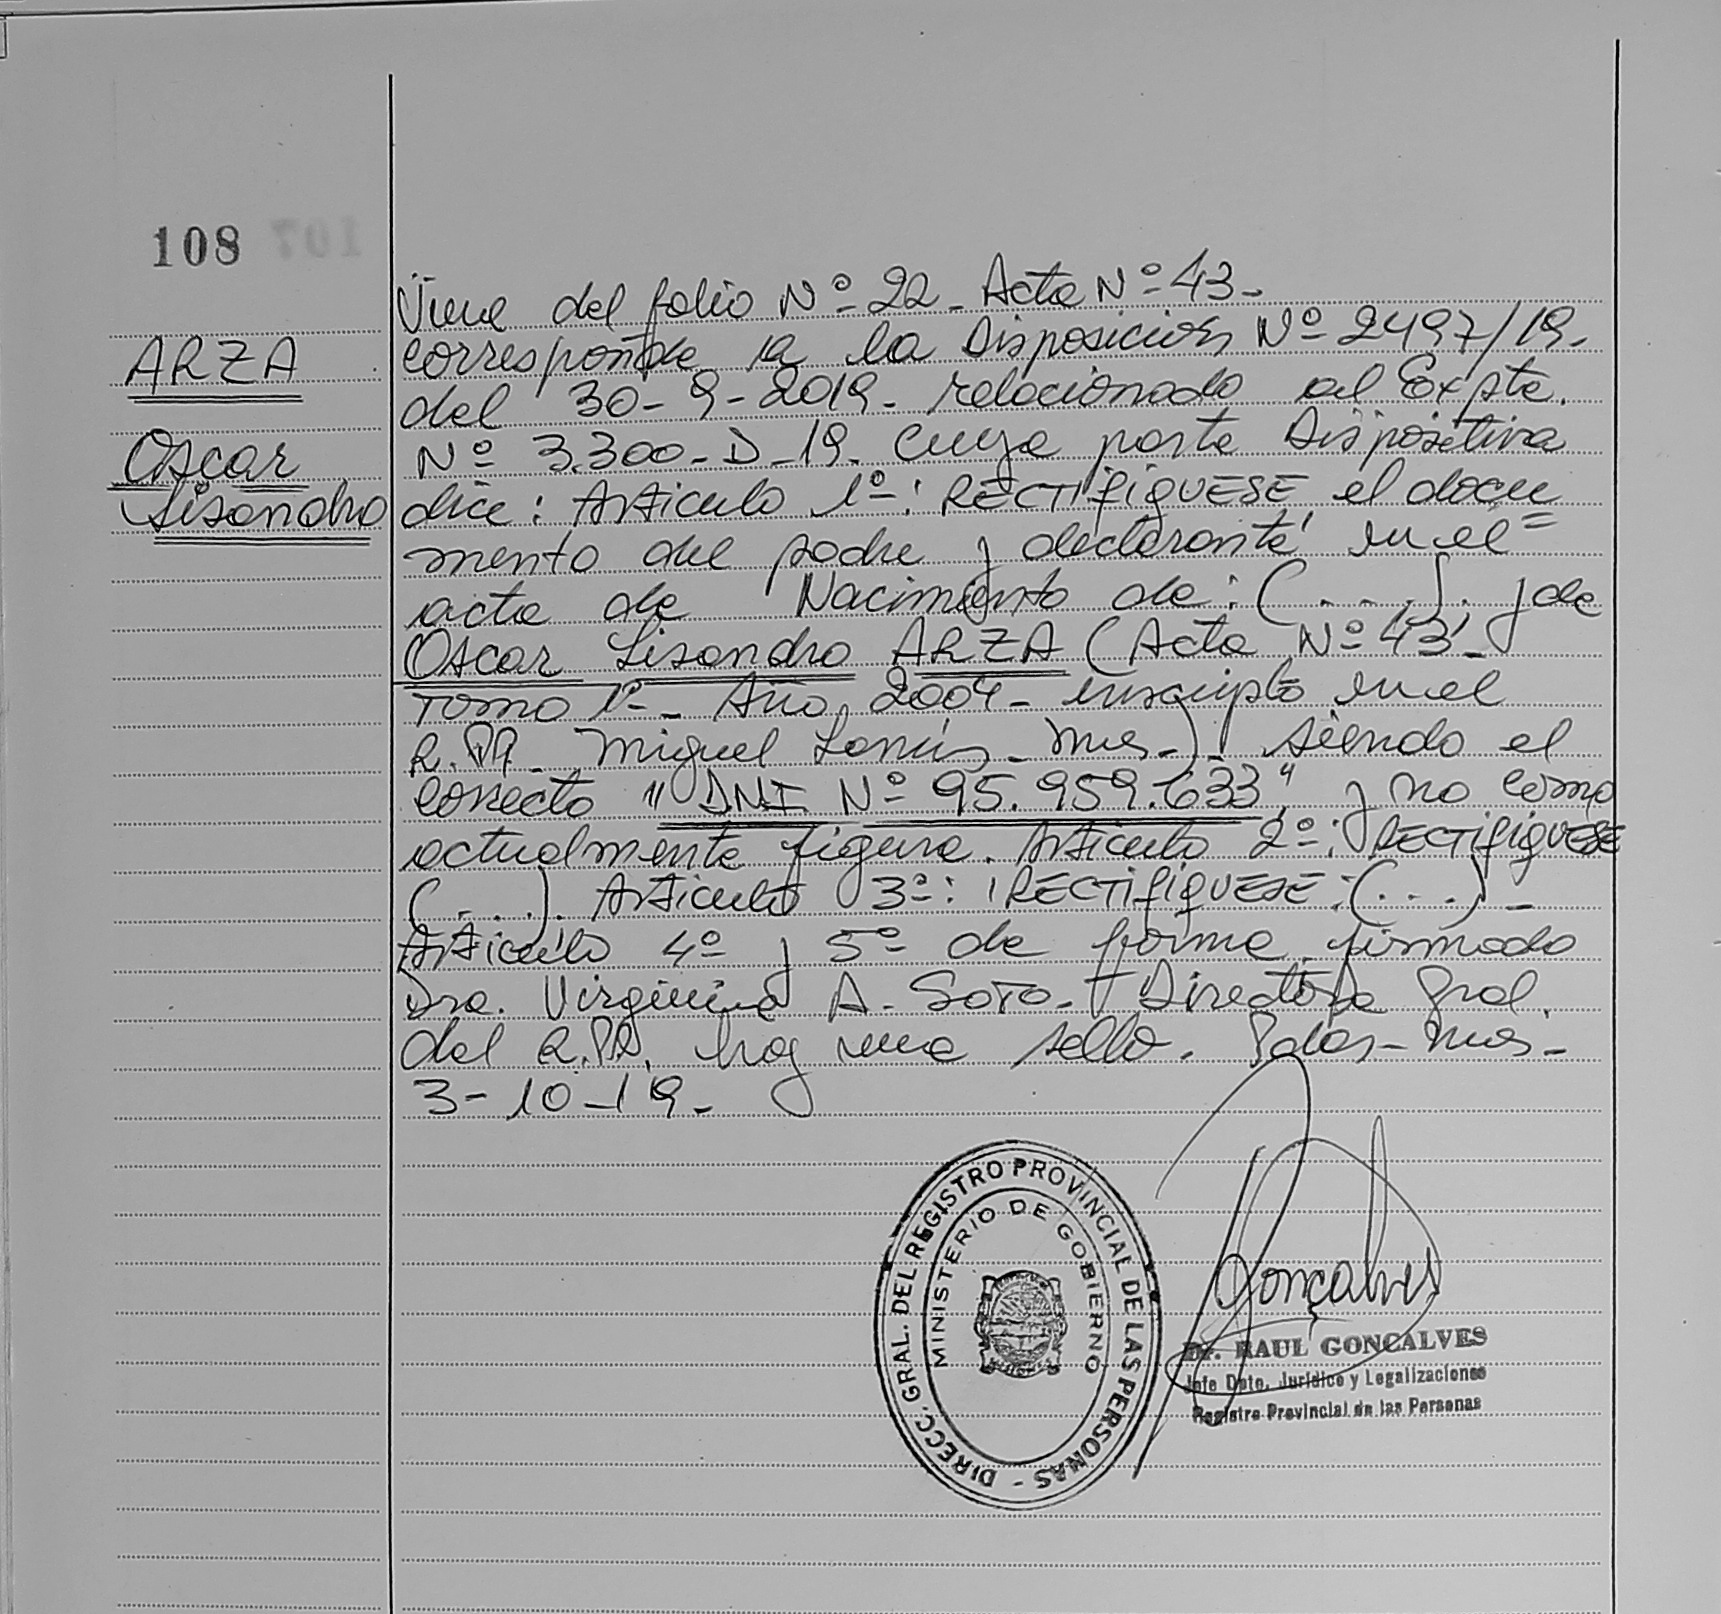 108
ARZA
Oscar
Lisandro
Viene del folio Nº 22 - Acta Nº 43 -
corresponde a la Disposición Nº 2497/19 -
del 30-9-2019 - relacionado al Expte.
Nº 3.300 - D - 19. Cuya parte Dispositiva
dice: Articulo 1º: RECTIFIQUESE el docu
mento del padre y declarante en el =
acta de Nacimiento de: (. . . .). y de
Oscar Lisandro ARZA (Acta Nº 43 -
Tomo 1º - Año 2004 - inscripto en el
R.PP. Miguel Lanús - Mnes -). siendo el
correcto "DNI Nº 95.959.633" y no como
actualmente figura. Articulo 2º: RECTIFIQUESE
(. . . .). Articulo 3º: RECTIFIQUESE: (. . . ) -
Articulo 4º y 5º de forma, firmado
Dra. Virginia A. Soto - Directora Gral.
del R.PP. hay un sello. Pdas - Mnes -
3 - 10 - 19 -
DIRECC. GRAL. DEL REGISTRO PROVINCIAL DE LAS PERSONAS -
MINISTERIO DE GOBIERNO
Gonçalves
Dr. RAUL GONCALVES
Jefe Dpto. Jurídico y Legalizaciones
Registro Provincial de las Personas